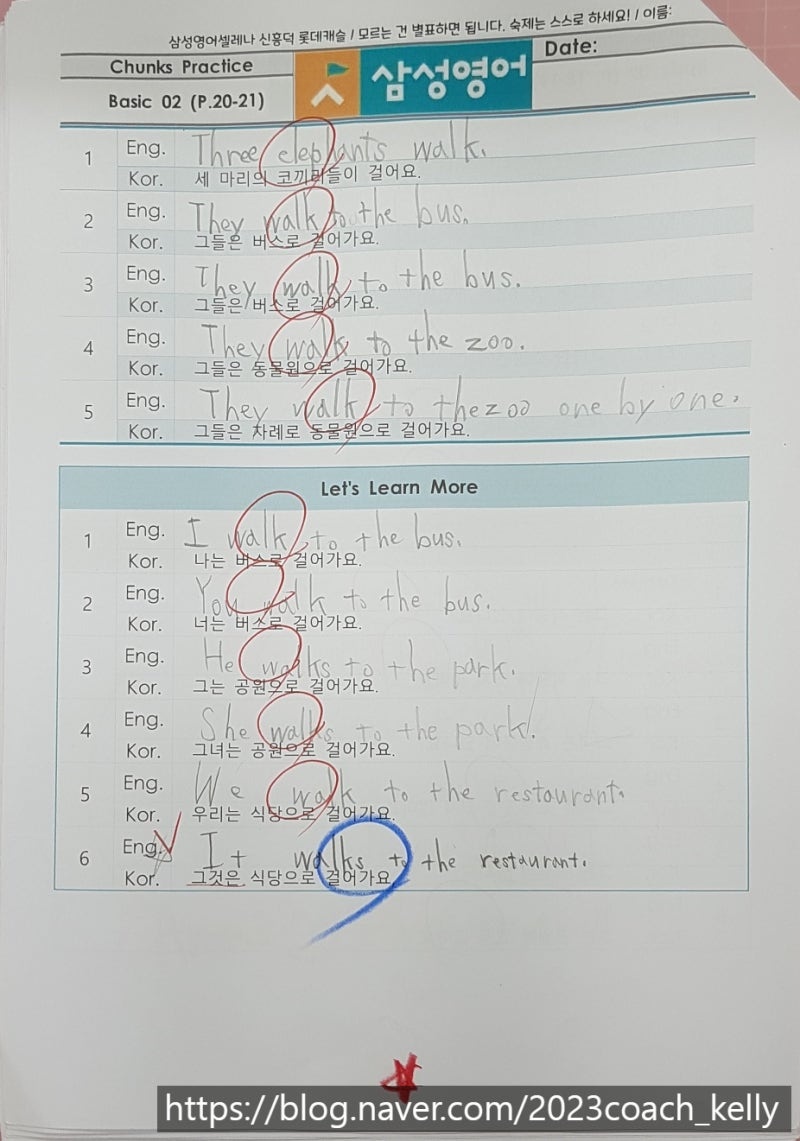 삼성영어셀레나 신흥덕 롯데캐슬 / 모르는 건 별표하면 됩니다. 숙제는 스스로 하세요! / 이름:
Chunks Practice
삼성영어
Date:
Basic 02 (P.20-21)
1 Eng. Three elephants walk.
Kor. 세 마리의 코끼리들이 걸어요.
2 Eng. They walk to the bus.
Kor. 그들은 버스로 걸어가요.
3 Eng. They walk to the bus.
Kor. 그들은 버스로 걸어가요.
4 Eng. They walk to the zoo.
Kor. 그들은 동물원으로 걸어가요.
5 Eng. They walk to the zoo one by one.
Kor. 그들은 차례로 동물원으로 걸어가요.
Let's Learn More
1 Eng. I walk to the bus.
Kor. 나는 버스로 걸어가요.
2 Eng. You walk to the bus.
Kor. 너는 버스로 걸어가요.
3 Eng. He walks to the park.
Kor. 그는 공원으로 걸어가요.
4 Eng. She walks to the park.
Kor. 그녀는 공원으로 걸어가요.
5 Eng. We walk to the restaurant.
Kor. 우리는 식당으로 걸어가요.
6 Eng. It walks to the restaurant.
Kor. 그것은 식당으로 걸어가요.
https://blog.naver.com/2023coach_kelly